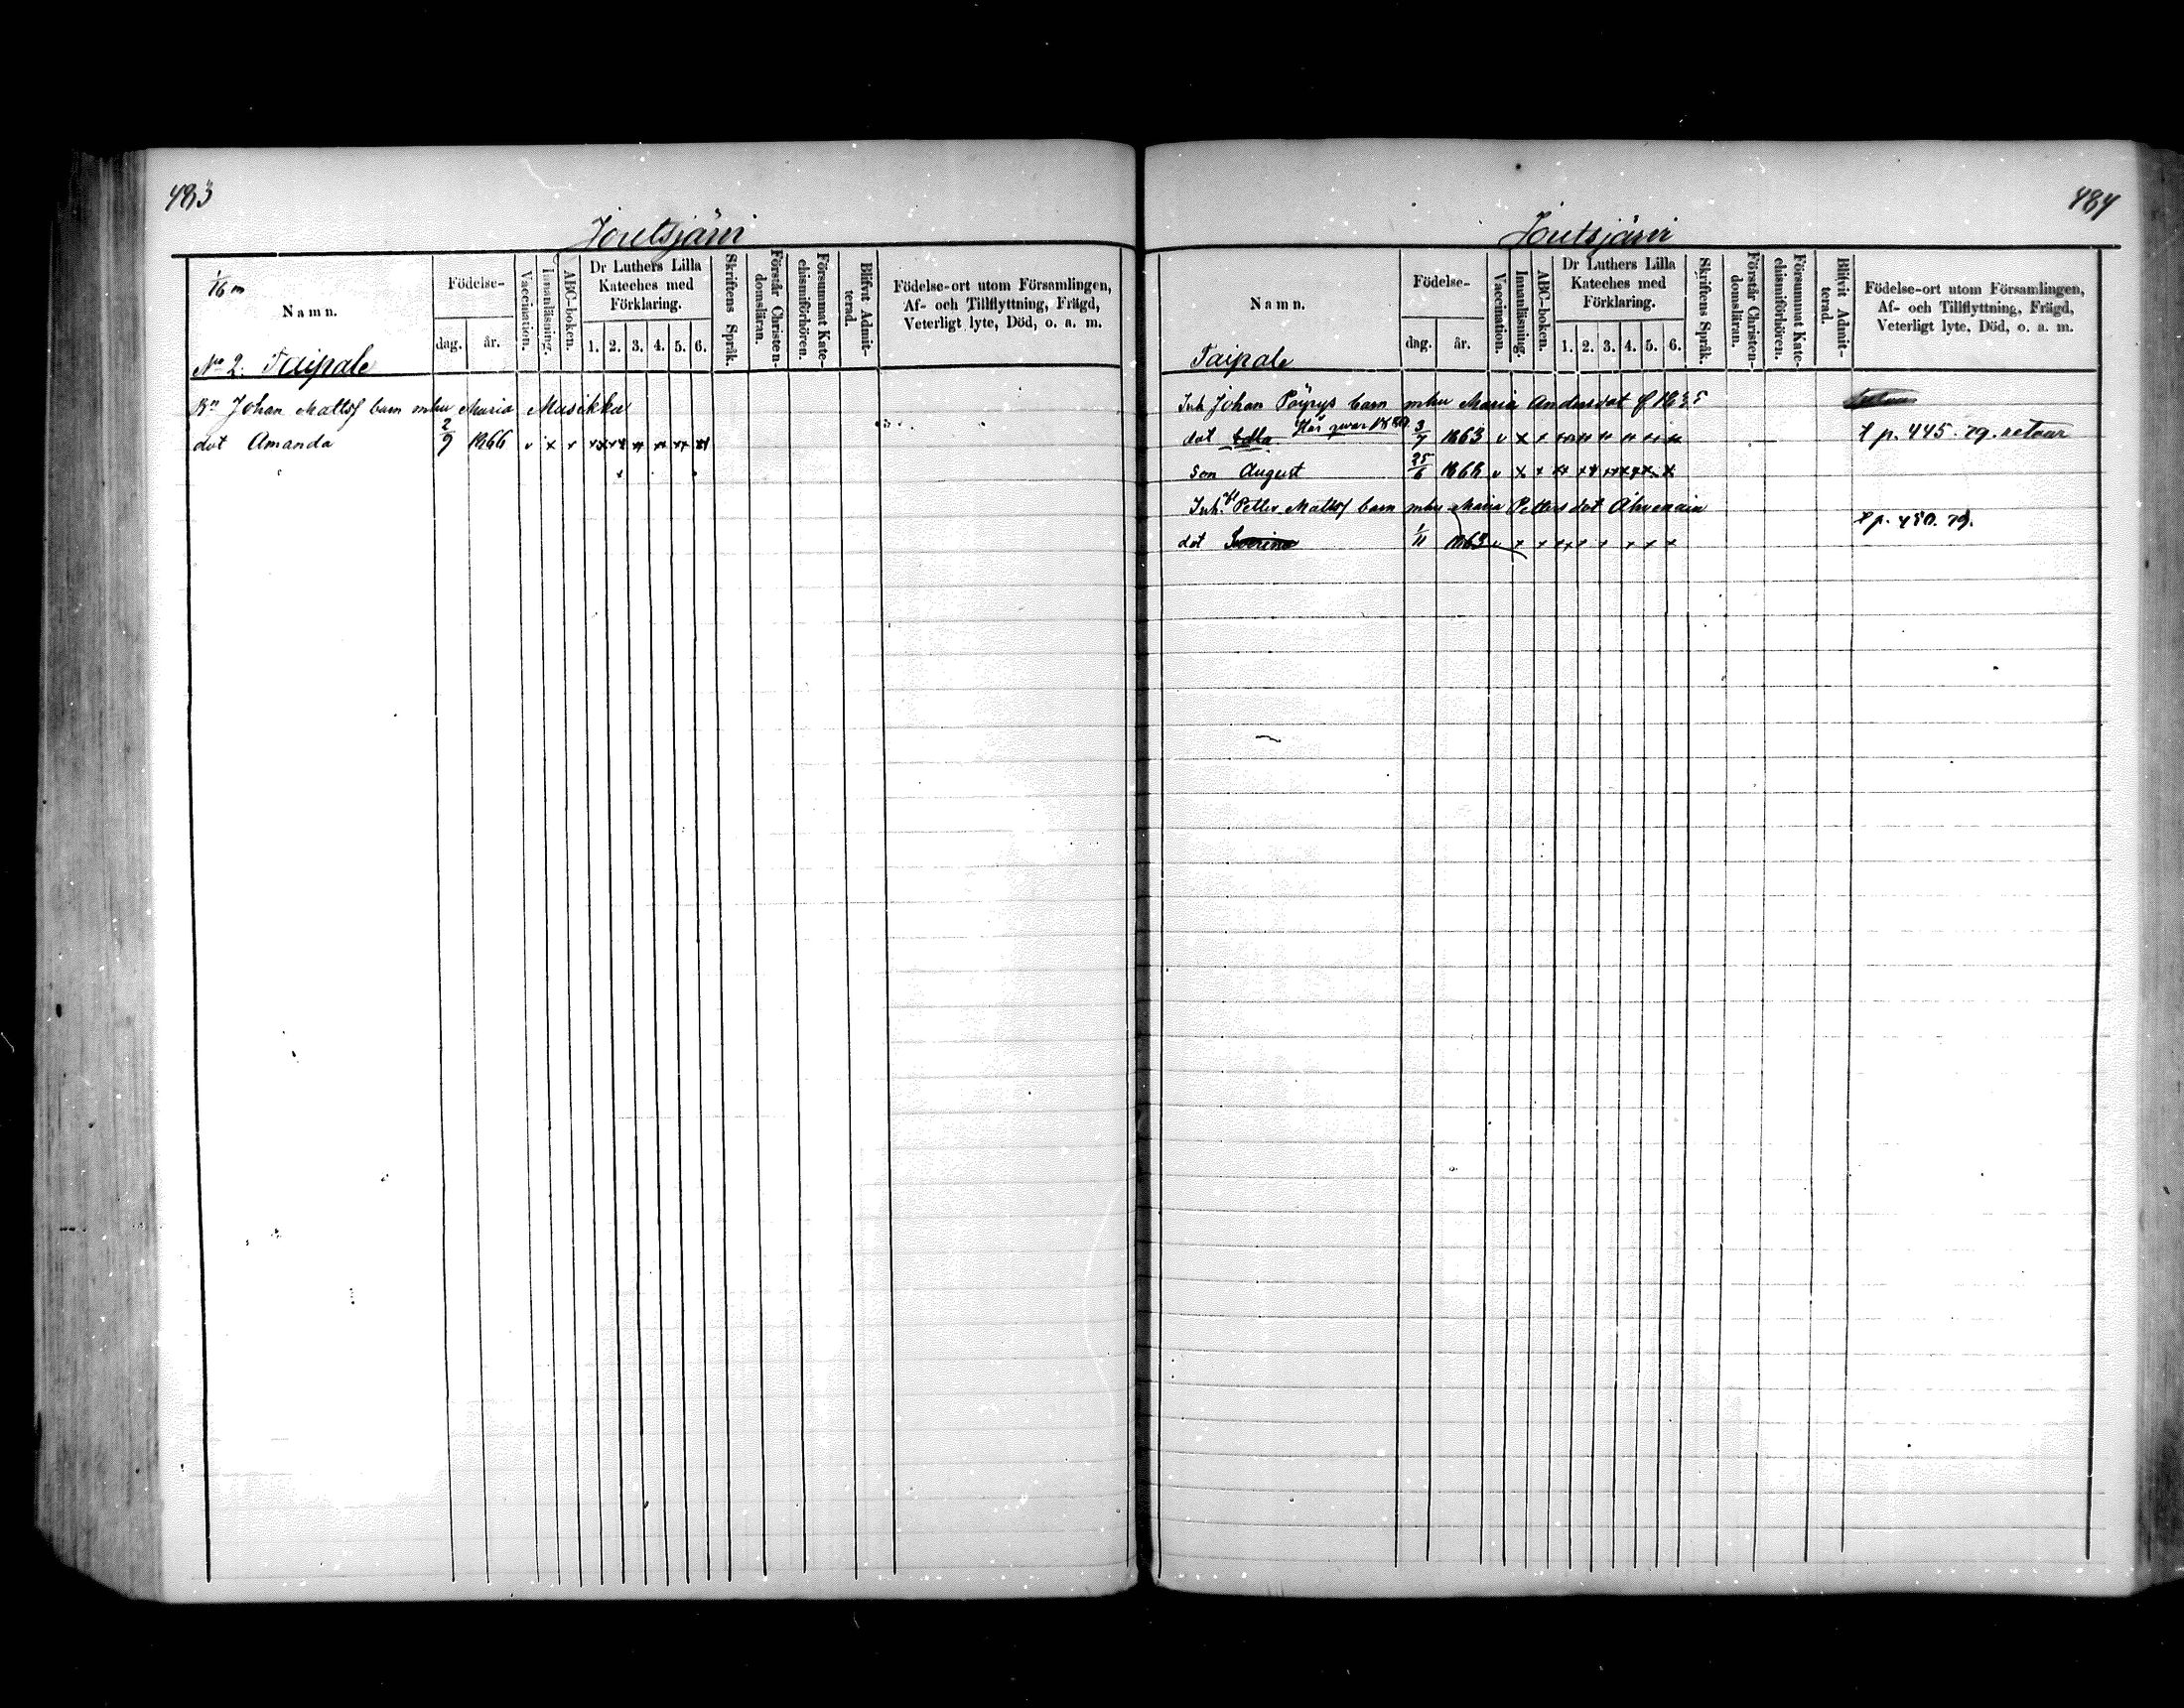 483
Joutsjärvi
1/6 m
Namn.
Födelse-
dag.
år.
Vaccination.
Innanläsning.
ABC-boken.
Dr Luthers Lilla
Kateches med
Förklaring.
1. 2. 3. 4. 5. 6.
Skriftens Språk.
Förstår Christen-
domsläran.
Försummat Kate-
chismiförhören.
Blifvit Admit-
terad.
Födelse-ort utom Församlingen,
Af- och Tillflyttning, Frägd,
Veterligt lyte, Död, o. a. m.
No 2. Taipale
Bn Johan Mattsf barn mhu Maria Masikka
dot Amanda 2/9 1866 v x x
484
Joutsjärvi
Namn.
Födelse-
dag.
år.
Vaccination.
Innanläsning.
ABC-boken.
Dr Luthers Lilla
Kateches med
Förklaring.
1. 2. 3. 4. 5. 6.
Skriftens Språk.
Förstår Christen-
domsläran.
Försummat Kate-
chismiförhören.
Blifvit Admit-
terad.
Födelse-ort utom Församlingen,
Af- och Tillflyttning, Frägd,
Veterligt lyte, Död, o. a. m.
Taipale
Inh Johan Pöyrys barn mhu Maria Andersdot f 1835
dot Edla 3/7 1863 v x x p. 445. 79. retour
son August 25/6 1866 v x x
Inh. Petter Mattsf barn mhu Maria Pettersdot Ahvenain
p. 450. 79.
dot Severina 1/11 1863 v x x